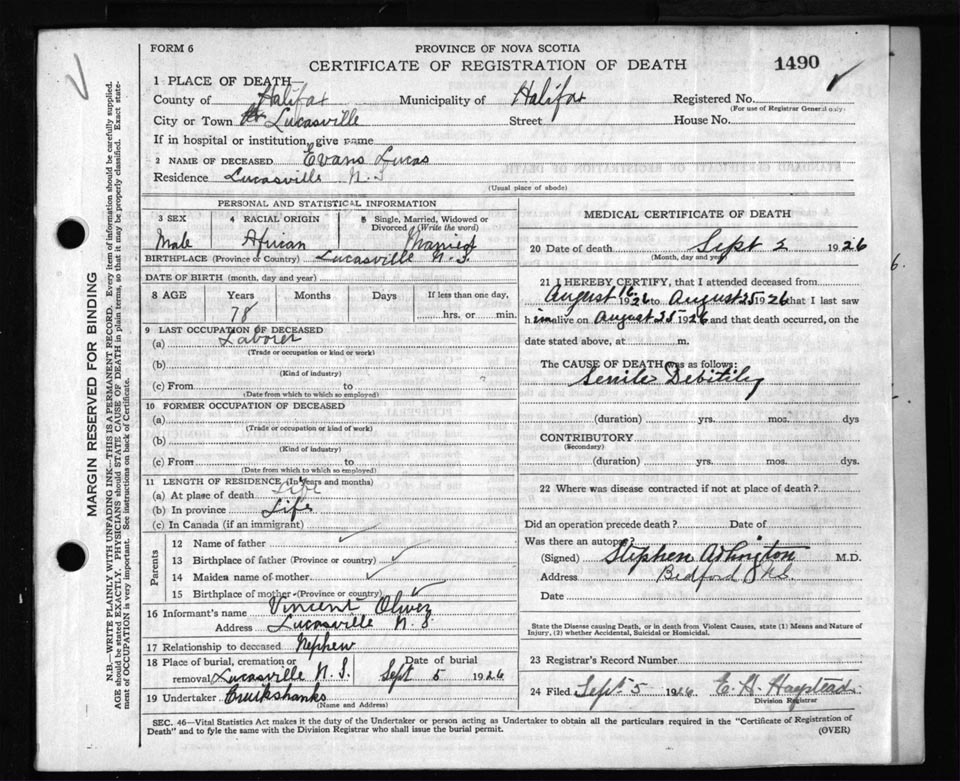 FORM 6
PROVINCE OF NOVA SCOTIA
CERTIFICATE OF REGISTRATION OF DEATH
1490
1 PLACE OF DEATH—
County of Halifax Municipality of Halifax Registered No.
(For use of Registrar General only)
City or Town Lucasville Street House No.
If in hospital or institution, give name
2 NAME OF DECEASED Evans Lucas
Residence Lucasville N.S
(Usual place of abode)
PERSONAL AND STATISTICAL INFORMATION
3 SEX 4 RACIAL ORIGIN 5 Single, Married, Widowed or Divorced (Write the word)
Male African Married
BIRTHPLACE (Province or Country) Lucasville N.S.
DATE OF BIRTH (month, day and year)
8 AGE Years Months Days If less than one day,
78 hrs. or min.
9 LAST OCCUPATION OF DECEASED
(a) Laborer
(Trade or occupation or kind of work)
(b)
(Kind of industry)
(c) From to
(Date from which to which so employed)
10 FORMER OCCUPATION OF DECEASED
(a)
(Trade or occupation or kind of work)
(b)
(Kind of industry)
(c) From to
(Date from which to which so employed)
11 LENGTH OF RESIDENCE (In years and months)
(a) At place of death Life
(b) In province Life
(c) In Canada (if an immigrant)
Parents
12 Name of father
13 Birthplace of father (Province or country)
14 Maiden name of mother
15 Birthplace of mother (Province or country)
16 Informant's name Vincent Oliver
Address Lucasville N.S.
17 Relationship to deceased Nephew
18 Place of burial, cremation or removal Lucasville N.S. Date of burial Sept 5 1926
19 Undertaker Cruikshanks
(Name and Address)
MEDICAL CERTIFICATE OF DEATH
20 Date of death Sept 2 1926
(Month, day and year)
21 I HEREBY CERTIFY, that I attended deceased from
August 1926 to August 25 1926 that I last saw
him alive on August 25 1926 and that death occurred, on the
date stated above, at m.
The CAUSE OF DEATH was as follows:
Senile Debitily
(duration) yrs. mos. dys
CONTRIBUTORY
(Secondary)
(duration) yrs. mos. dys.
22 Where was disease contracted if not at place of death?
Did an operation precede death? Date of
Was there an autopsy?
(Signed) Stephen M.D.
Address Bedford NS
Date
State the Disease causing Death, or in death from Violent Causes, state (1) Means and Nature of
Injury, (2) whether Accidental, Suicidal or Homicidal.
23 Registrar's Record Number
24 Filed Sept 5 1926 E. H.
Division Registrar
SEC. 46—Vital Statistics Act makes it the duty of the Undertaker or person acting as Undertaker to obtain all the particulars required in the "Certificate of Registration of
Death" and to fyle the same with the Division Registrar who shall issue the burial permit.
(OVER)
MARGIN RESERVED FOR BINDING
N.B.—WRITE PLAINLY WITH UNFADING INK—THIS IS A PERMANENT RECORD. Every item of information should be carefully supplied.
AGE should be stated EXACTLY. PHYSICIANS should STATE CAUSE OF DEATH in plain terms, so that it may be properly classified. Exact state-
ment of OCCUPATION is very important. See instructions on back of Certificate.